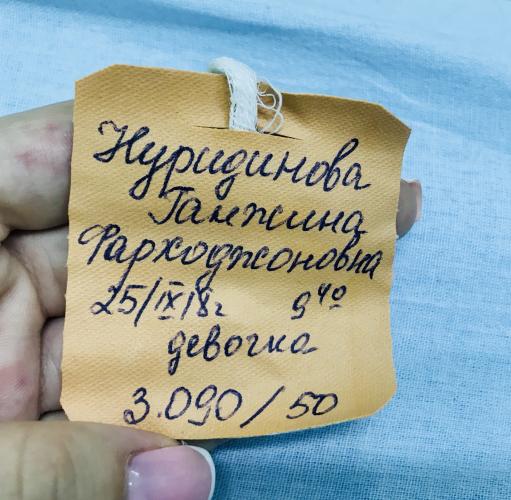 Нуридинова
Ганжина
Фарходжоновна
25/IX/18г 9⁴⁰
девочка
3.090/50